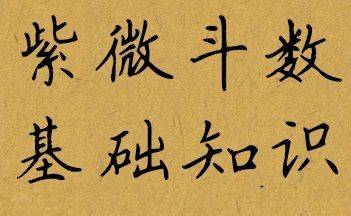 紫微斗数
基础知识